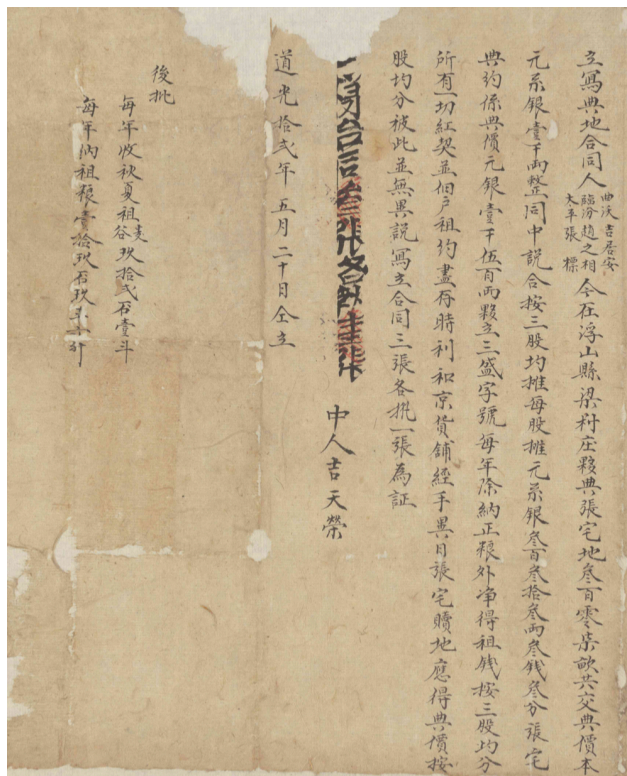 立寫典地合同人曲沃吉居安臨汾趙之相太平張標今在浮山縣梁村庄夥典張宅地叁百零柒畝共交典價本
元系銀壹千兩整同中說合按三股均攤每股攤元系銀叁百叁拾叁兩叁錢叁分張宅
典約係典價元銀壹千伍百兩夥立三盛字號每年除納正粮外净得租錢按三股均分
所有一切紅契並佃戶租約盡存時利和京貨舖經手異日張宅贖地應得典價按
股均分彼此並無異說寫立合同三張各执一張為証
中人吉天榮
道光拾弍年五月二十日仝立
後批
每年收秋夏租麦谷玖拾弍石壹斗
每年納租粮壹拾玖石玖斗